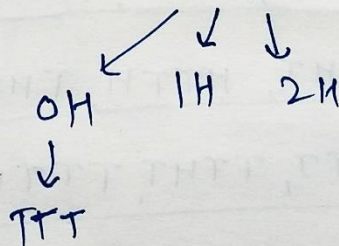 0H 1H 2H
TTT